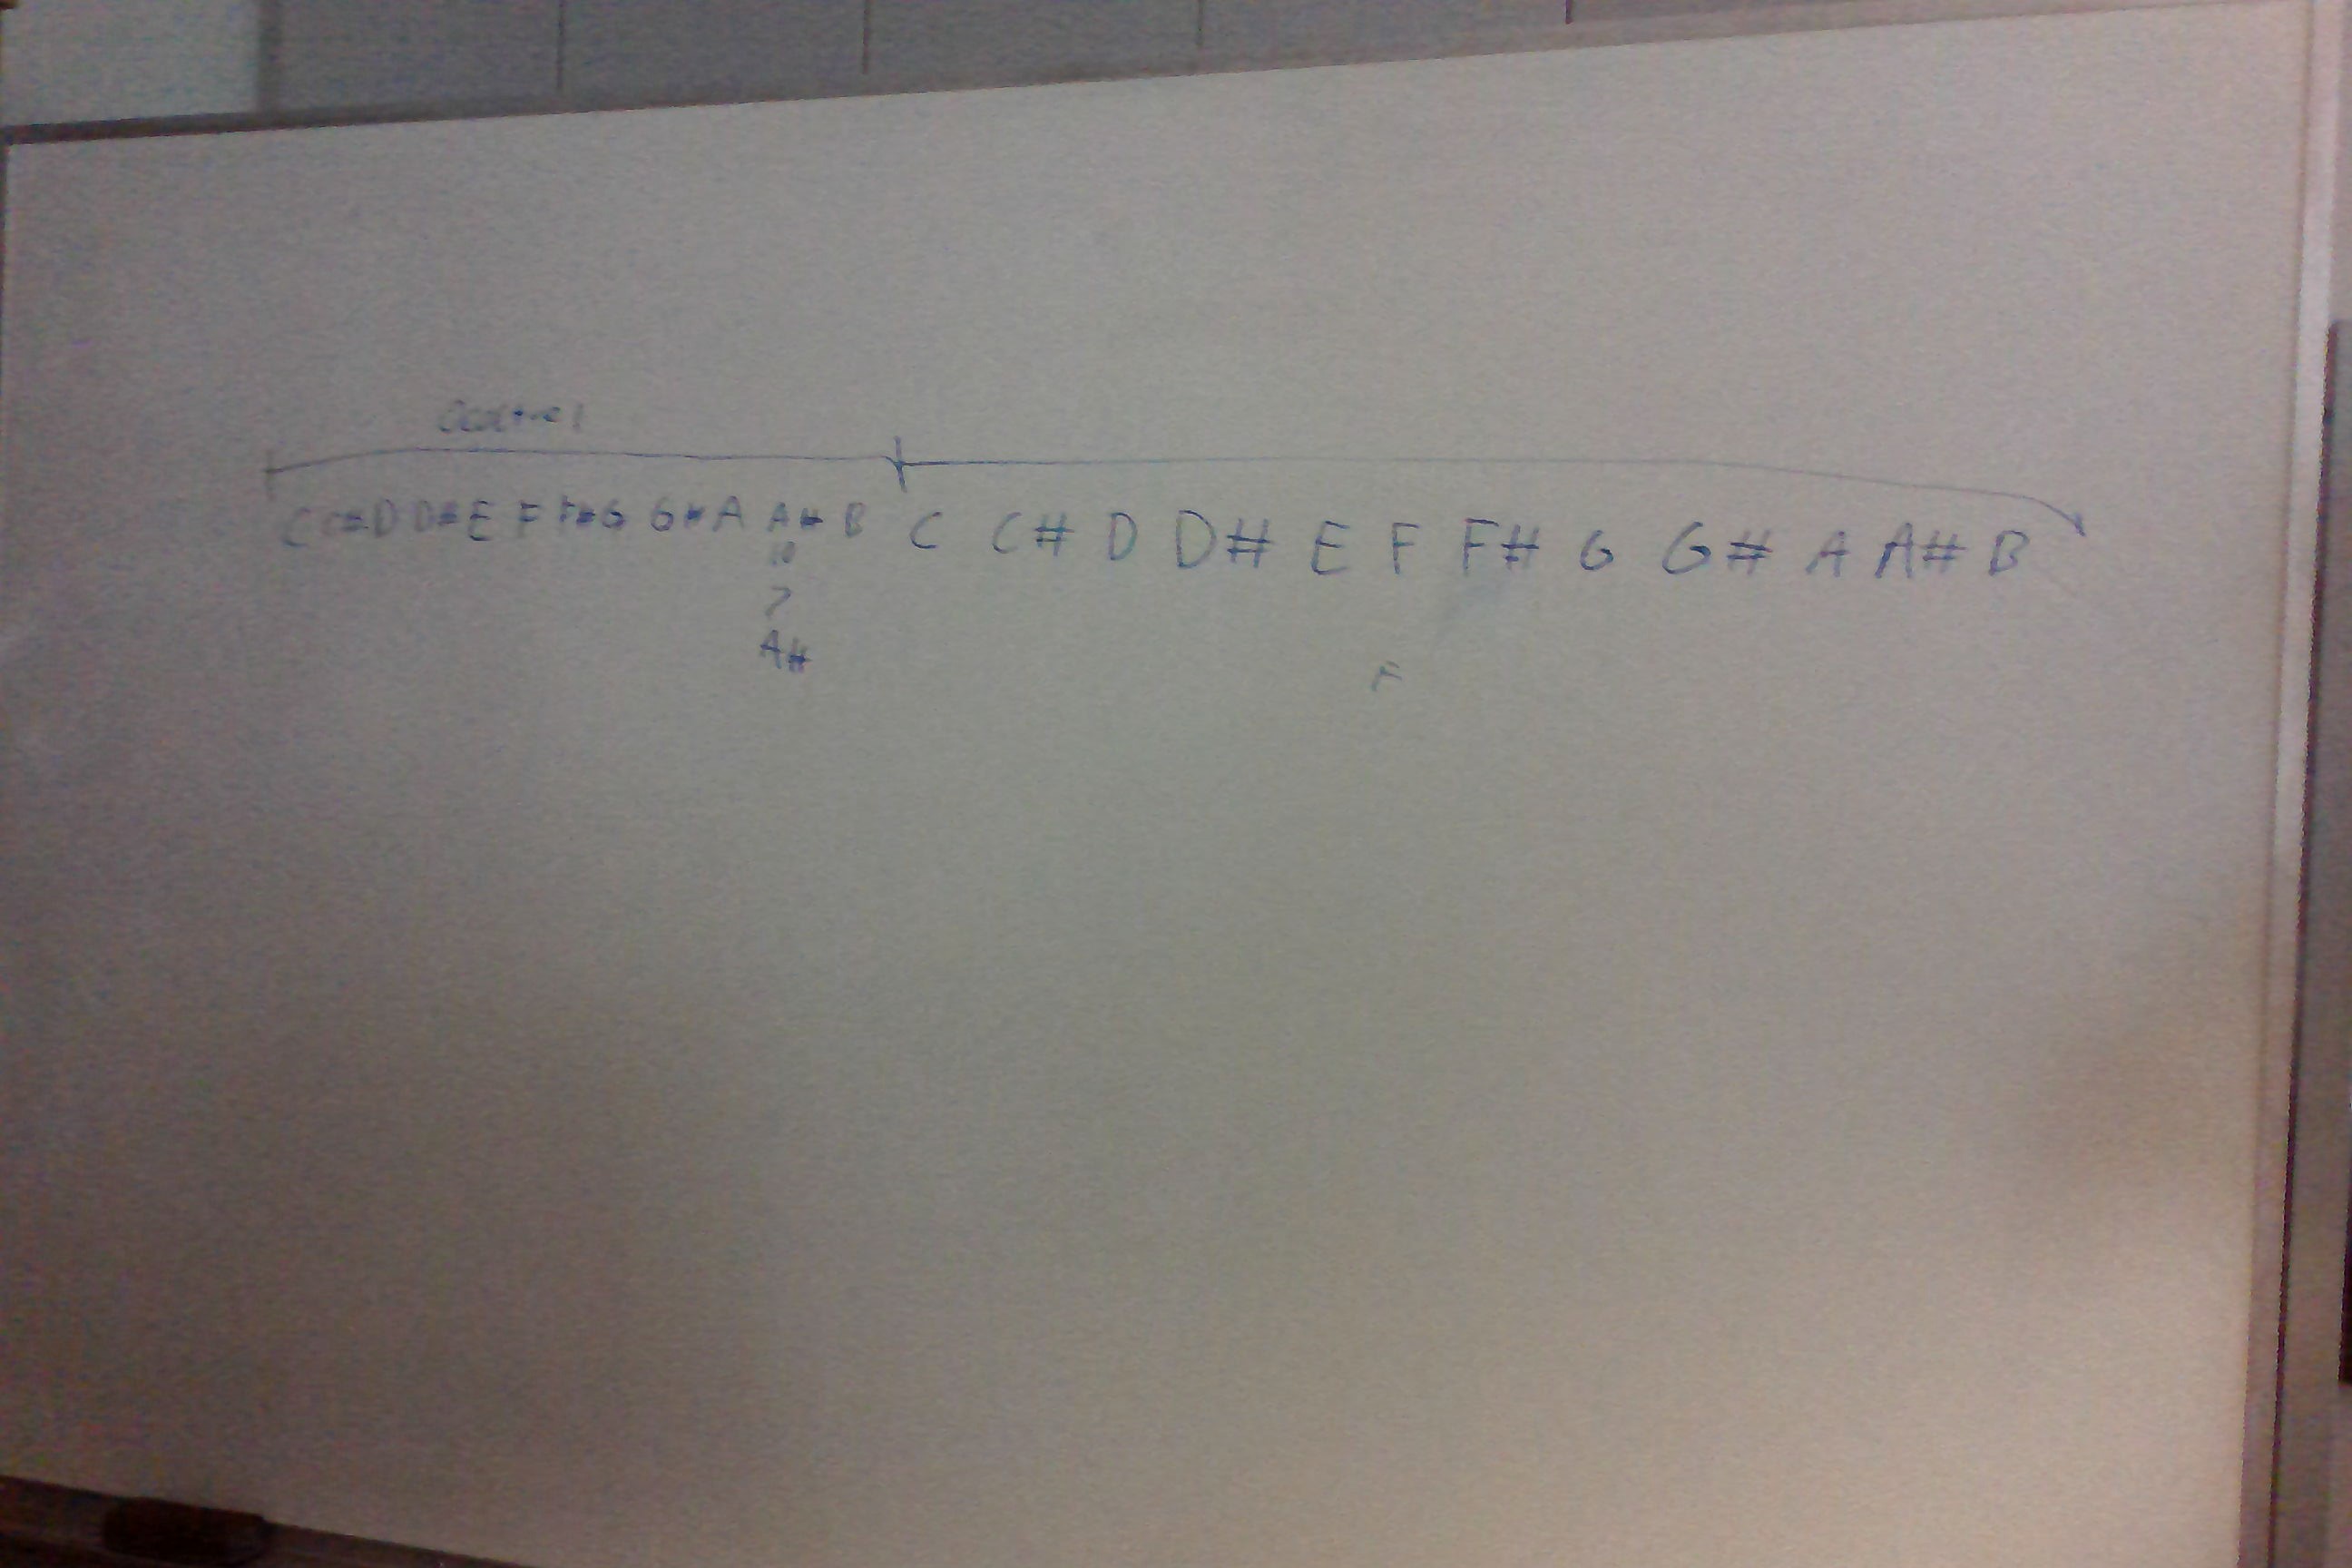 C C# D D# E F F# G G# A A# B C C# D D# E F F# G G# A A# B
10
7
A#
F